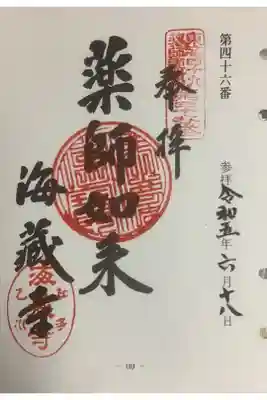 第四十六番
参拝 令和五年六月十八日
奉拝
薬師如来
海蔵寺